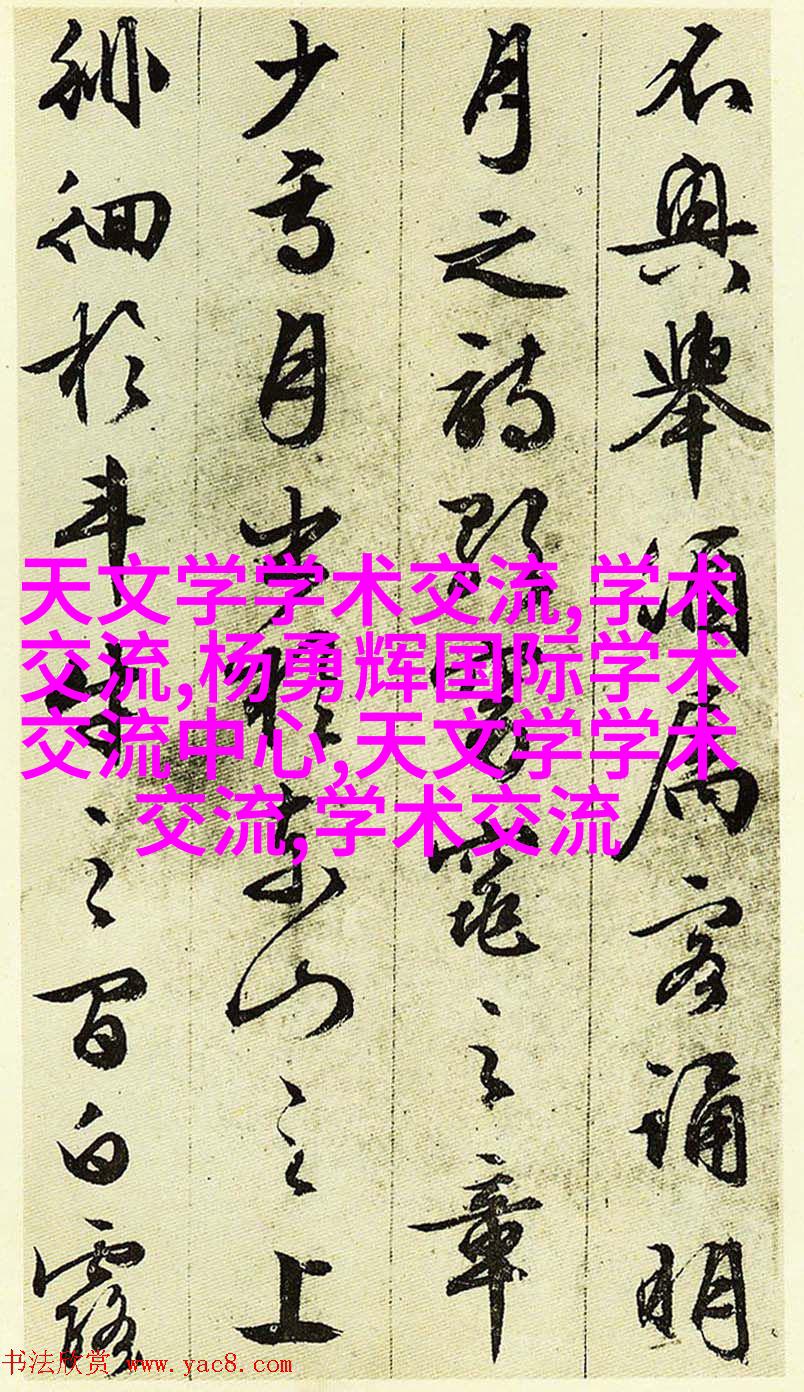 不興舉酒屬客誦明
月之詩歌窈窕之章
少焉月出於東山之上
徘徊於斗牛之間白露
天文学学术交流,学术
交流,杨勇辉国际学术
交流中心,天文学学术
交流,学术交流
书法欣赏 www.yac8.com